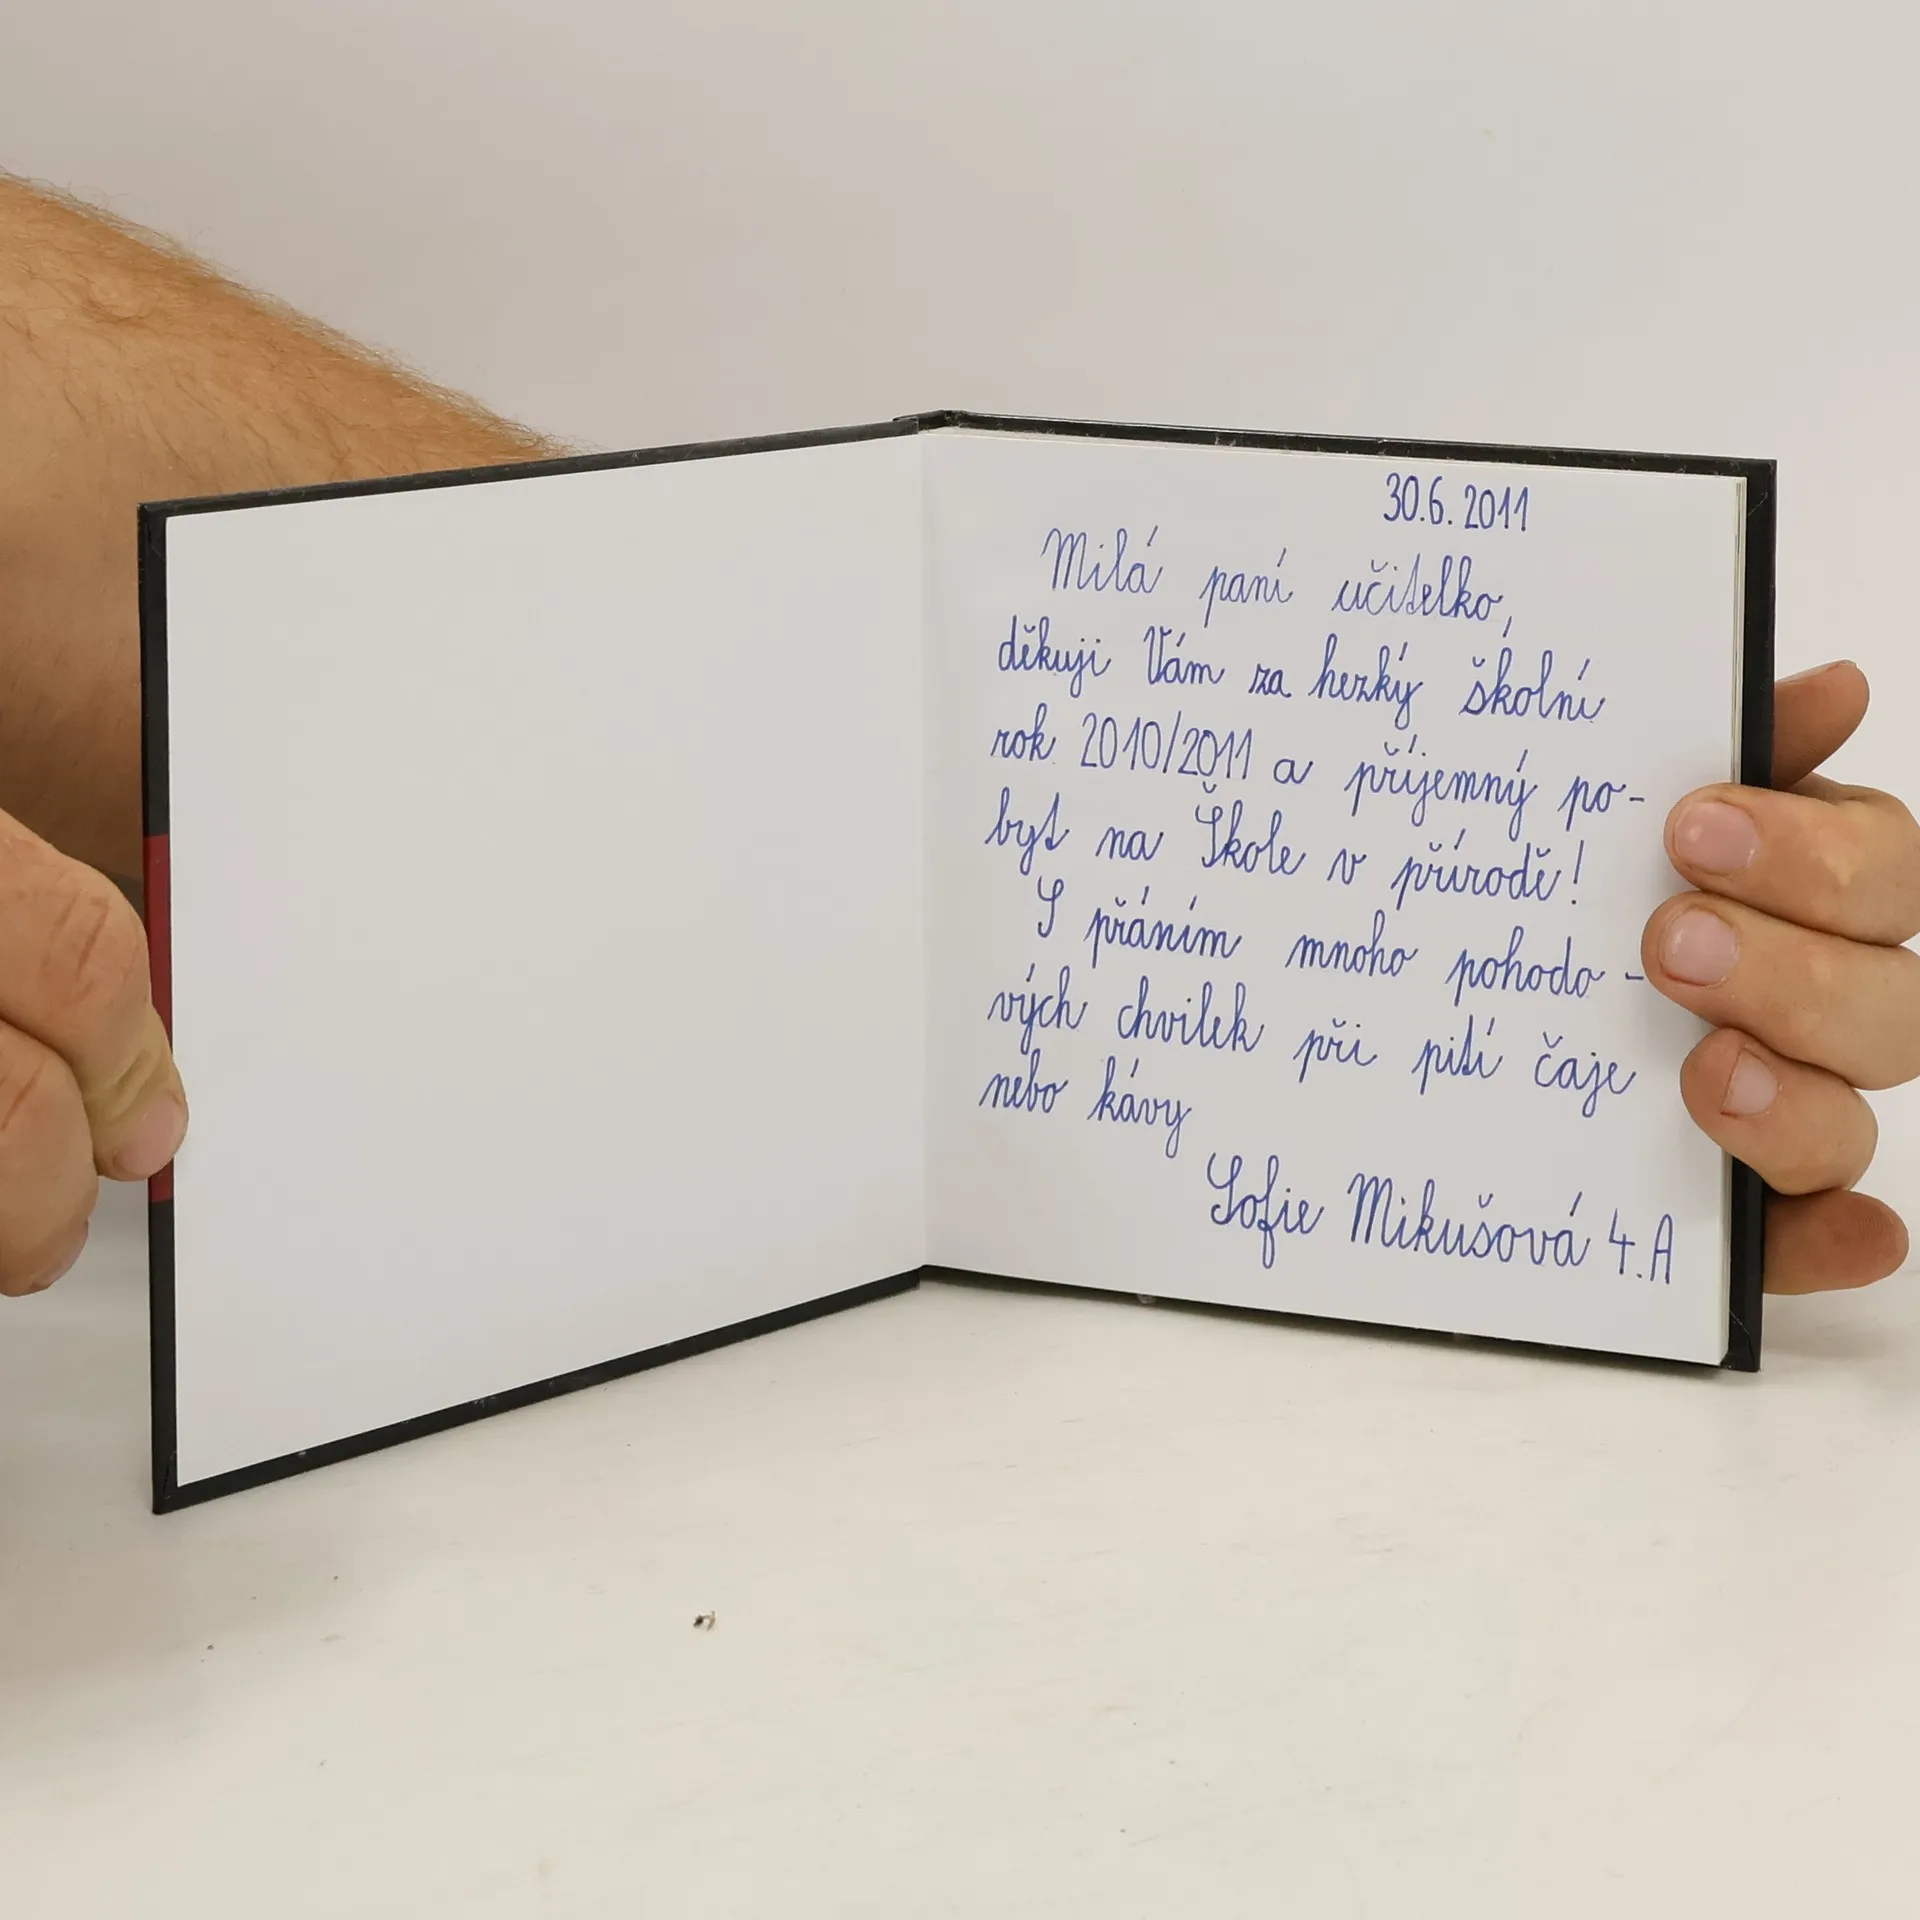 30.6. 2011
Milá paní učitelko,
děkuji Vám za hezký školní
rok 2010/2011 a příjemný po-
byt na Škole v přírodě!
S přáním mnoho pohodo-
vých chvilek při pití čaje
nebo kávy
Sofie Mikušová 4.A